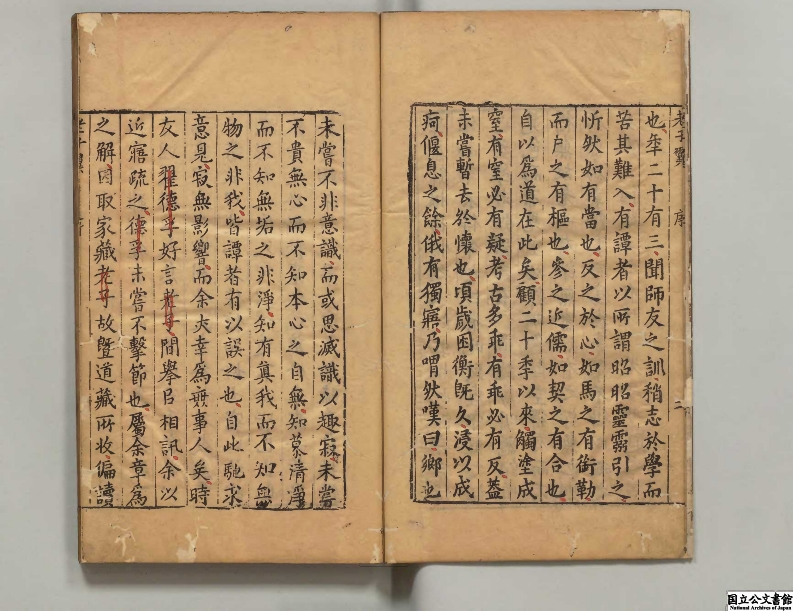 老子翼 序 二
也年二十有三聞師友之訓稍志於學而
苦其難入有譚者以所謂昭昭靈靈引之
忻然如有當也反之於心如馬之有銜勒
而戶之有樞也參之近儒如契之有合也
自以爲道在此矣顧二十年以來觸塗成
窒有窒必有疑考古多乖有乖必有反蓋
未嘗暫去於懷也頃歲困衡旣久浸以成
痾偃息之餘俄有獨寤乃喟然嘆曰鄉也
未嘗不非意識而或思滅識以趣寂未嘗
不貴無心而不知本心之自無知慕清凈
而不知無垢之非淨知有眞我而不知無
物之非我皆譚者有以誤之也自此馳求
意見寂無影響而余亦幸爲無事人矣時
友人翟德孚好言老子間舉以相訊余以
近寤疏之德孚未嘗不擊節也屬余章爲
之解因取家藏老子故曁道藏所收徧讀
国立公文書館
National Archives of Japan